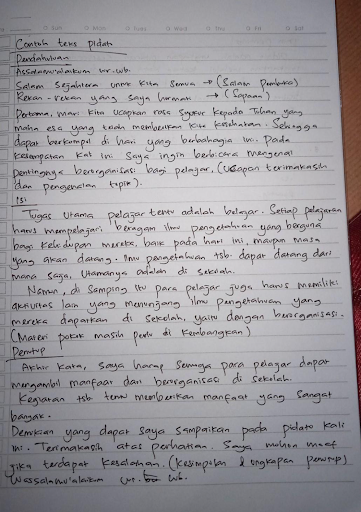 Contoh teks Pidato
Pendahuluan
Assalamu'alaikum wr.wb.
Salam Sejahtera untuk kita semua → (Salam Pembuka)
Rekan-rekan yang saya hormati → (Sapaan)
Pertama, mari kita ucapkan rasa syukur kepada Tuhan yang
maha esa yang telah memberikan kita kesehatan. Sehingga
dapat berkumpul di hari yang berbahagia ini. Pada
kesempatan kali ini Saya ingin berbicara mengenai
pentingnya berorganisasi bagi pelajar. (Ucapan terimakasih
dan pengenalan topik).
Isi
Tugas utama pelajar tentu adalah belajar. Setiap pelajaran
harus mempelajari beragam ilmu pengetahuan yang berguna
bagi kehidupan mereka, baik pada hari ini, maupun masa
yang akan datang. Ilmu pengetahuan tsb. dapat datang dari
mana saja, Utamanya adalah di sekolah.
Namun, di samping itu para pelajar juga harus memiliki
aktivitas lain yang menunjang ilmu pengetahuan yang
mereka dapatkan di sekolah, yaitu dengan berorganisasi.
(Materi pokok masih perlu di kembangkan)
Penutup
Akhir kata, saya harap semoga para pelajar dapat
mengambil manfaat dari berorganisasi di sekolah.
Kegiatan tsb tentu memberikan manfaat yang sangat
banyak.
Demikian yang dapat saya sampaikan pada pidato kali
ini. Terimakasih atas perhatian. Saya mohon maaf
jika terdapat kesalahan. (Kesimpulan & ungkapan penutup)
Wassalamu'alaikum wr. wb.